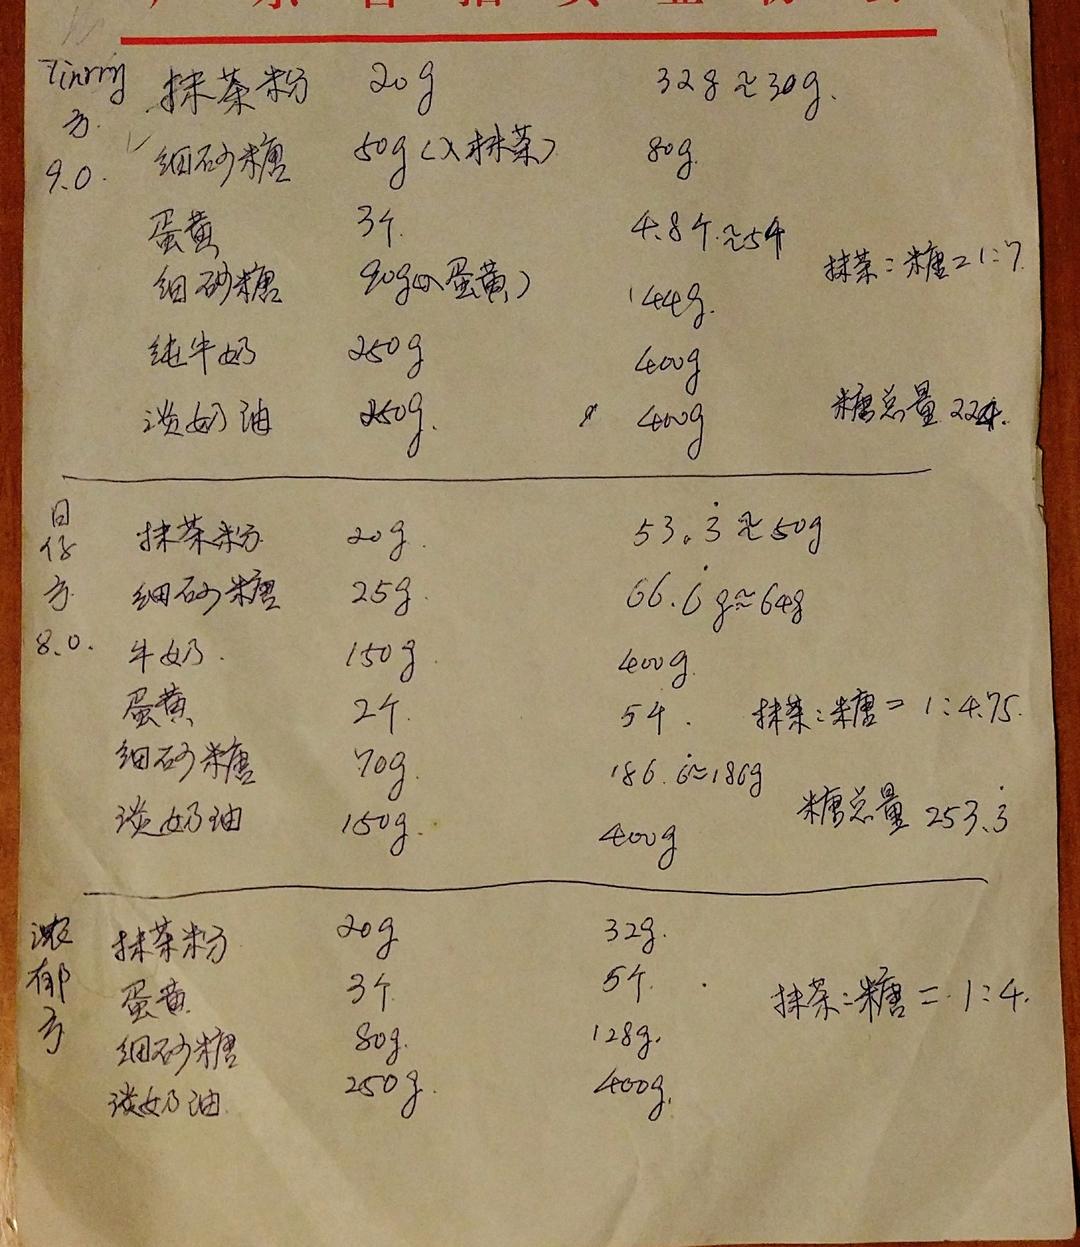 Tinrry 抹茶粉 20g 32g≈30g.
方. 细砂糖 50g(入抹茶) 80g.
9.0.
蛋黄 3个. 4.8个.≈5个
抹茶:糖=1:7
细砂糖 90g(入蛋黄) 144g.
纯牛奶 250g 400g
淡奶油 250g. 400g 糖总量 224.
日仔方 8.0.
抹茶粉 20g. 53.3̇≈50g
细砂糖 25g. 66.6̇g≈64g
牛奶. 150g. 400g.
蛋黄 2个. 5个. 抹茶:糖=1:4.75.
细砂糖 70g. 186.6̇≈186g
淡奶油 150g. 400g 糖总量 253.3̇
浓郁方
抹茶粉 20g 32g.
蛋黄 3个. 5个. 抹茶:糖=1:4.
细砂糖 80g. 128g.
淡奶油. 250g. 400g.